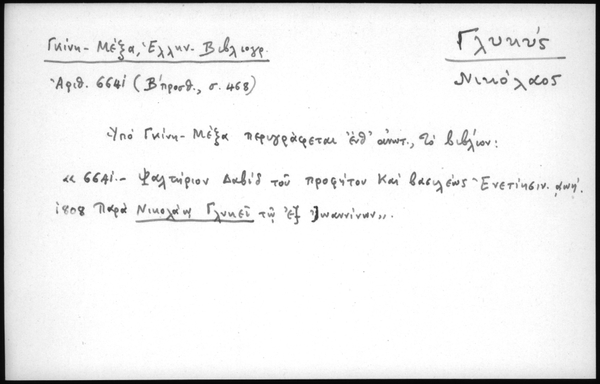 Γκίνη - Μέξα, Ἑλλην. Βιβλιογρ.
Γλυκύς
Νικόλαος
Ἀριθ. 6641 (Β΄ προσθ., σ. 468)
Ὑπό Γκίνη - Μέξα περιγράφεται ἐνθ' ἀνωτ., τό βιβλίον:
« 6641.- Ψαλτήριον Δαβίδ τοῦ προφήτου καί βασιλέως Ἐνετίησιν. αωη΄.
1808 Παρά Νικολάῳ Γλυκεῖ τῷ ἐξ Ἰωαννίνων».